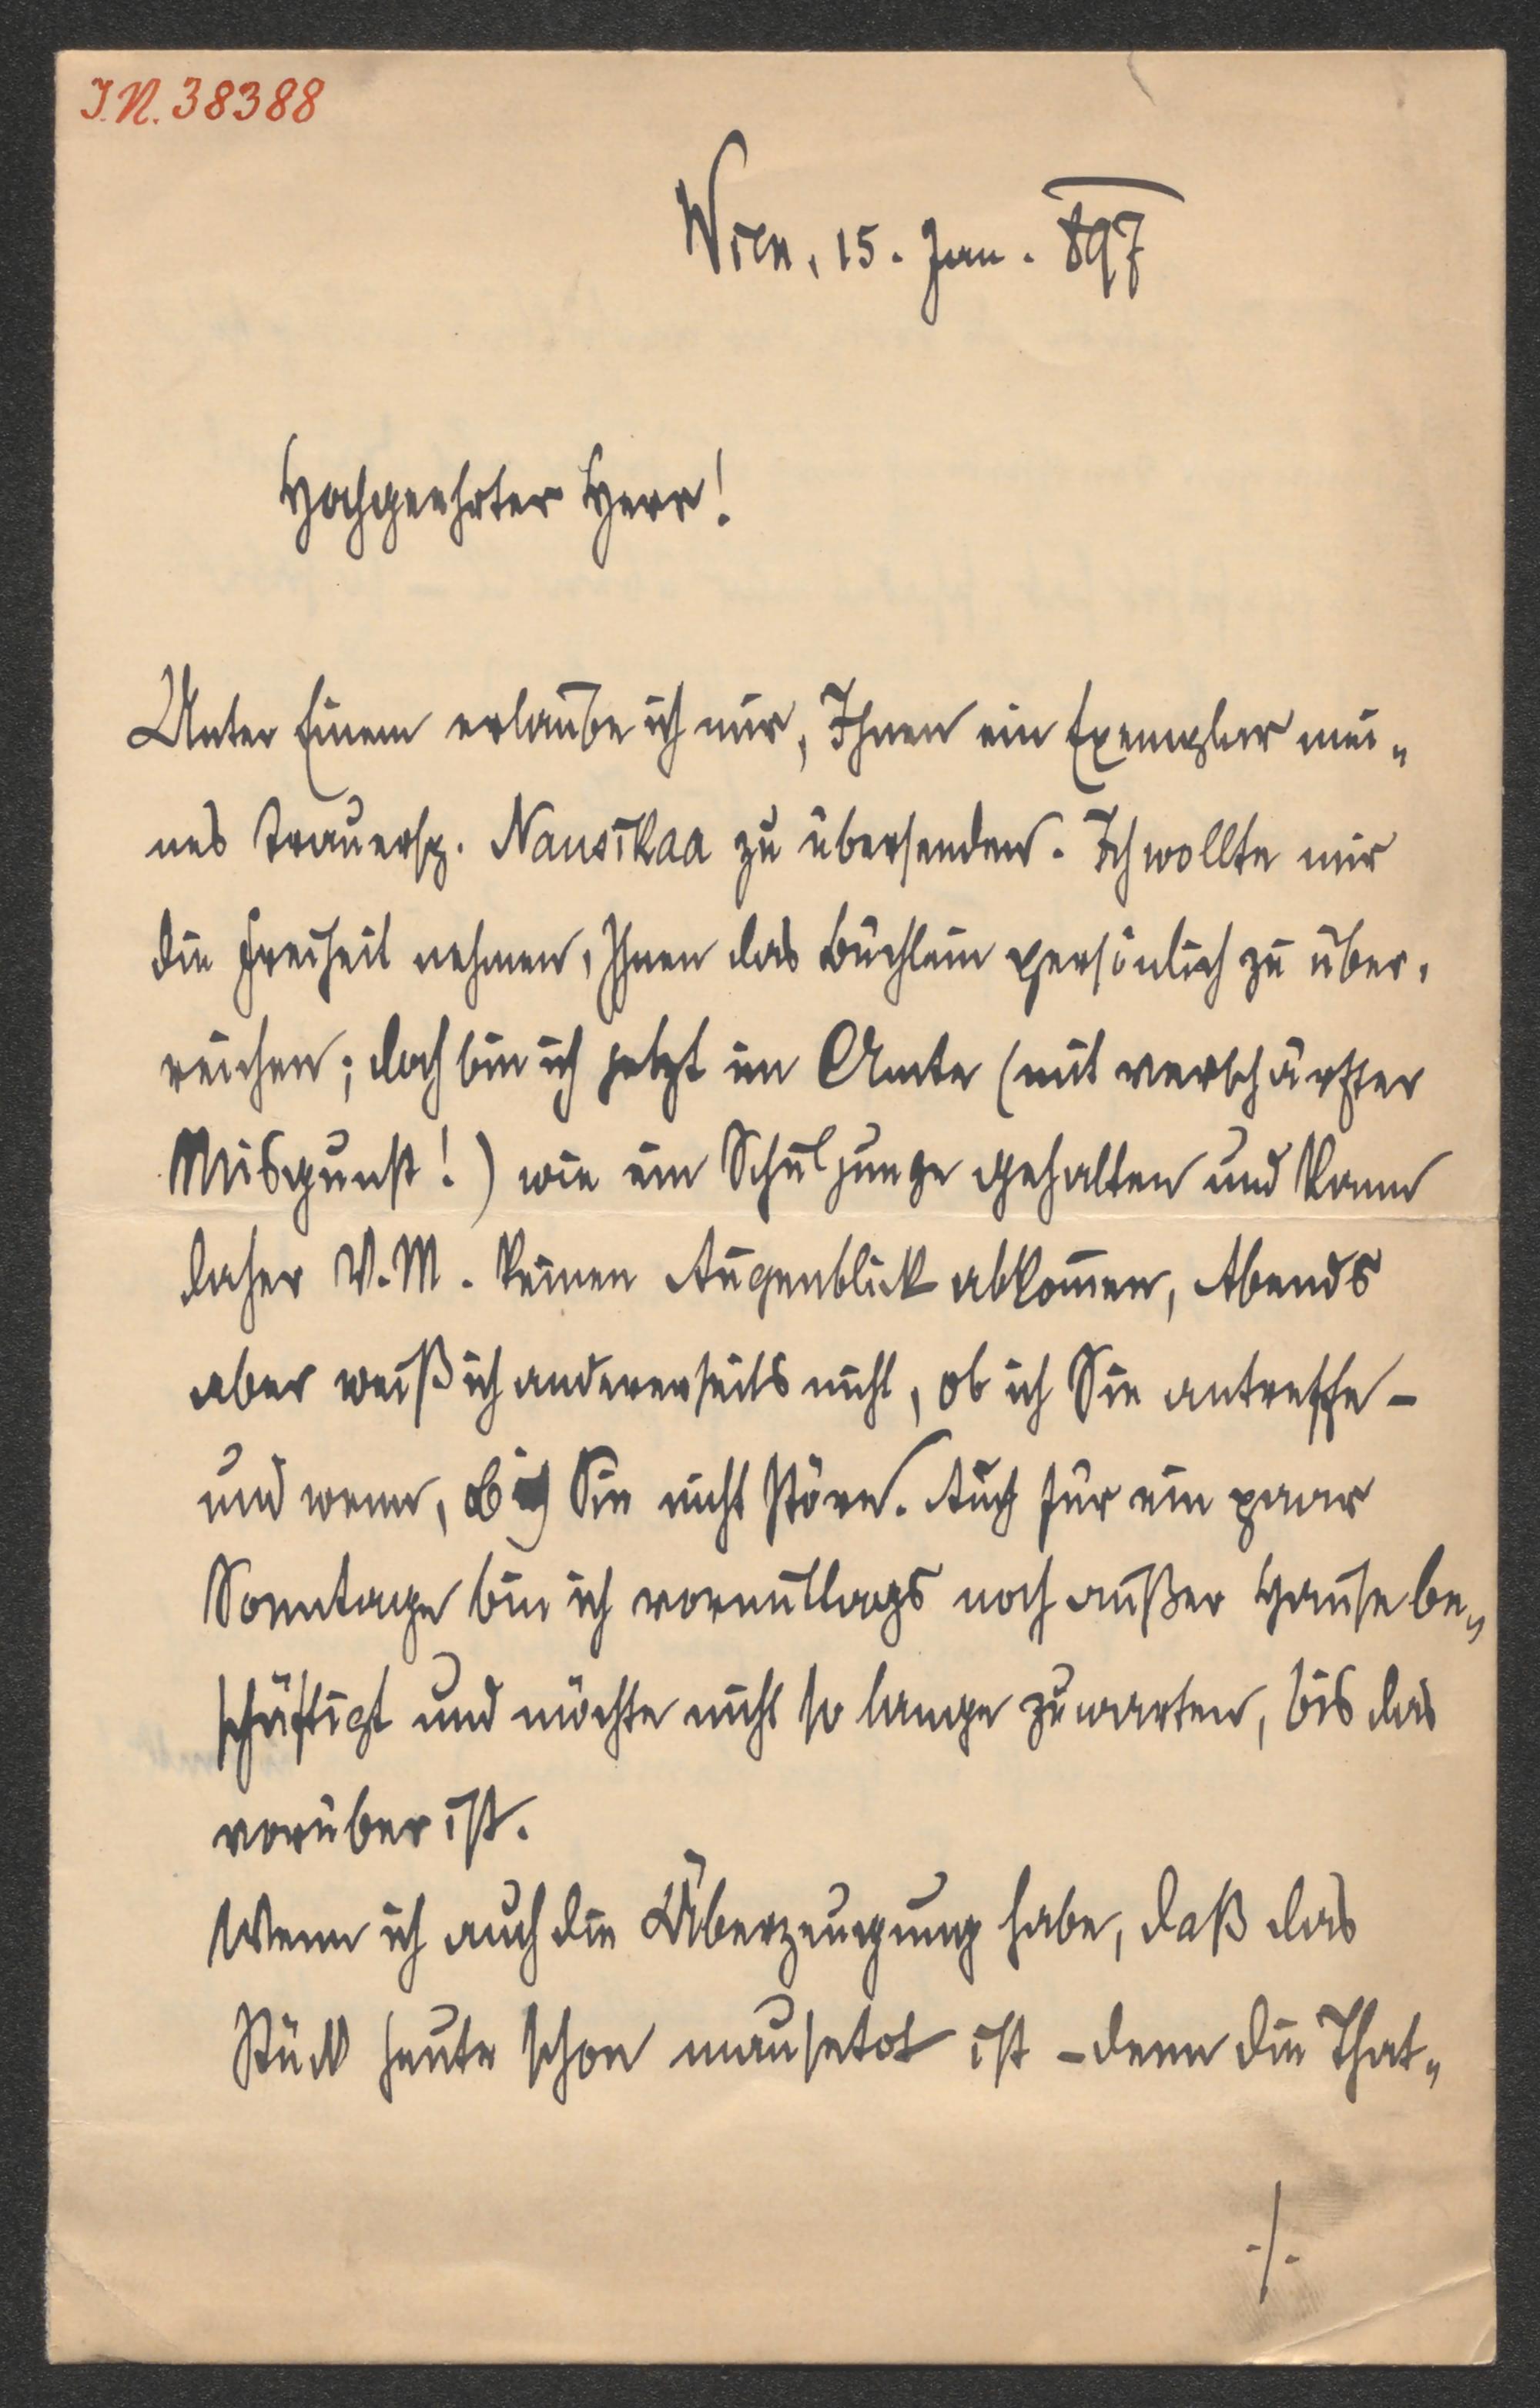 I.N. 38388
Wien, 15. Jan. 897
Hochgeehrter Herr!
Unter Einem erlaube ich mir, Ihnen ein Exemplar mei-
nes Trauersp. Nausikaa zu übersenden. Ich wollte mir
die Freiheit nehmen, Ihnen das Büchlein persönlich zu über-
reichen; doch bin ich jetzt im Amte (mit verschärfter
Misgunst!) wie ein Schuljunge gehalten und kann
daher V.M. keinen Augenblick abkom̄en, Abends
aber weiß ich andererseits nicht, ob ich Sie antreffe –
und wenn, ob ich Sie nicht störe. Auch für ein paar
Sonntage bin ich vormittags noch außer Hause be-
schäftigt und möchte nicht so lange zuwarten, bis das
vorüber ist.
Wenn ich auch die Überzeugung habe, daß das
Stück heute schon mausetot ist – denn die That-
./.